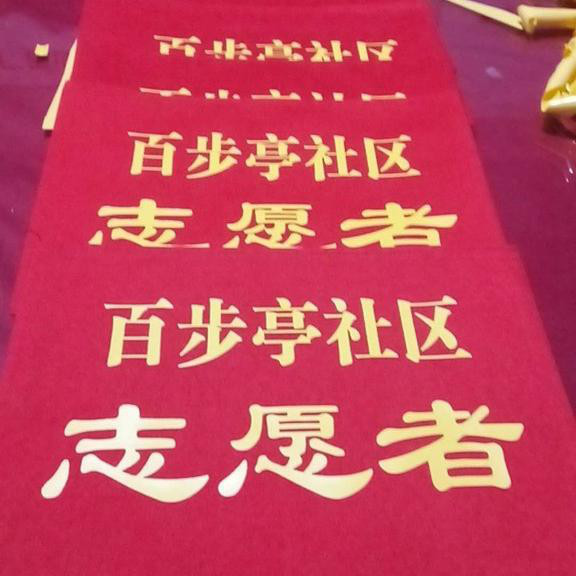 百步亭社区
百步亭社区
百步亭社区
志愿者
百步亭社区
志愿者